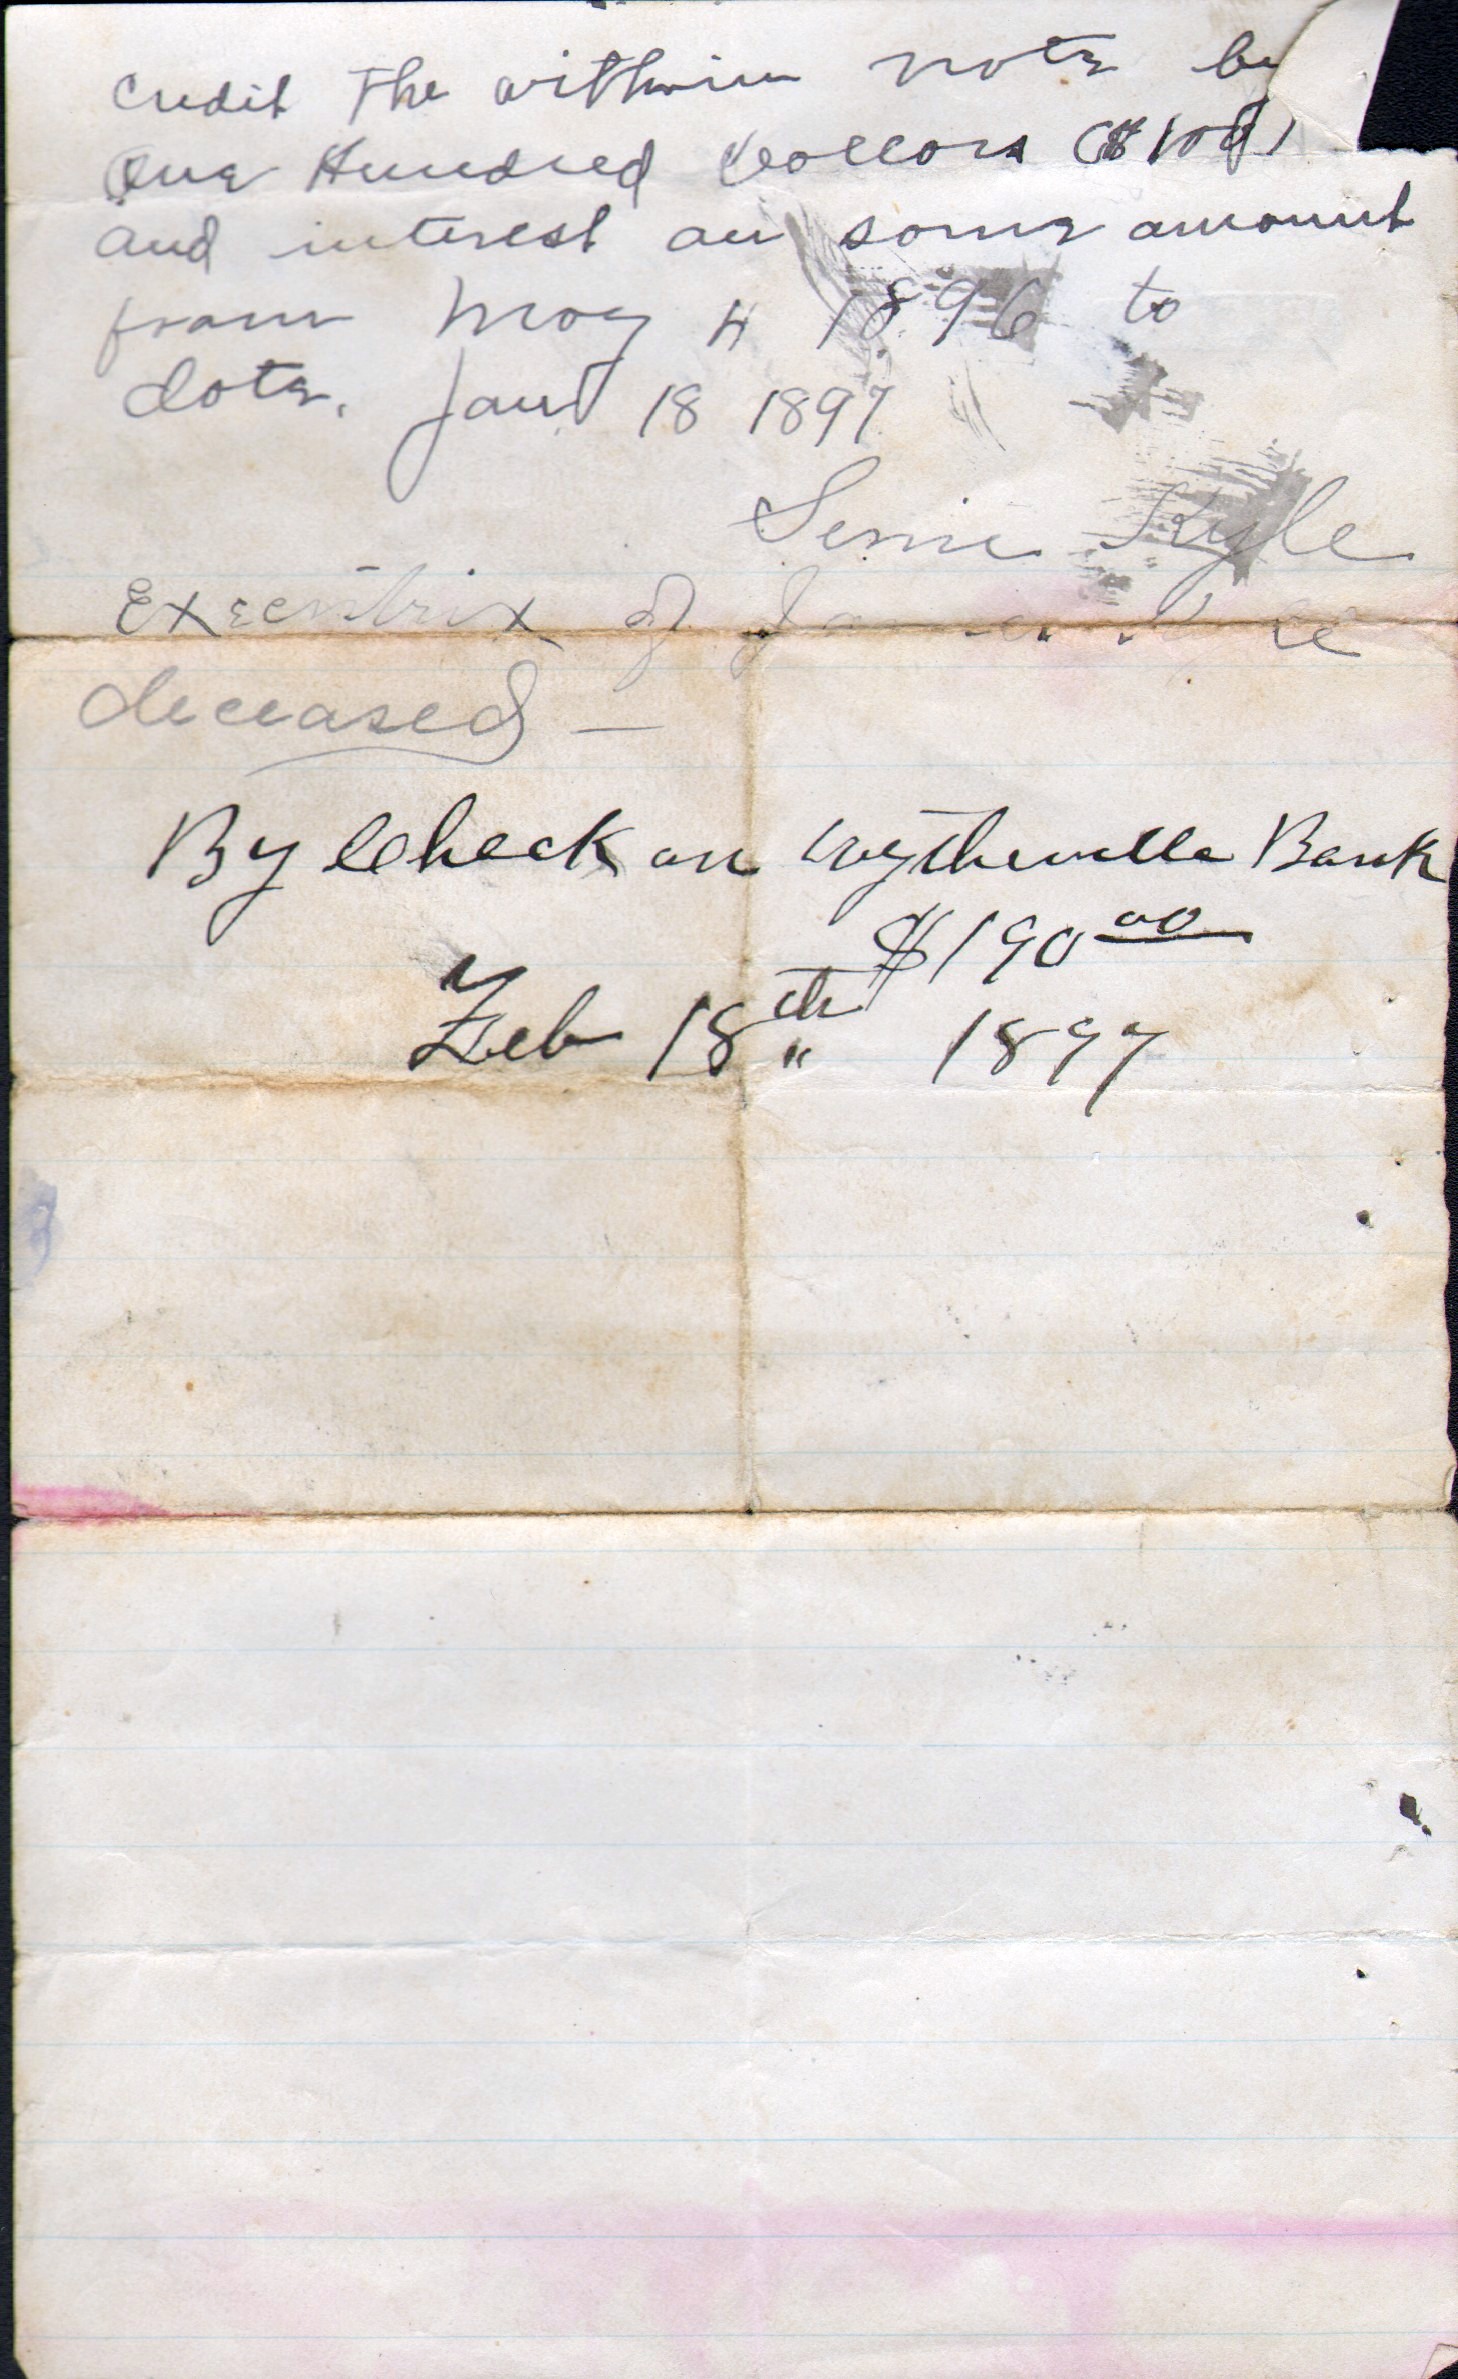 Credit The within note by
One Hundred Dollars ($100)
and interest on same amount
from May 4 1896 to
date. Jany 18 1897
Kyle
Executrix of James Kyle
deceased —
By Check on Wytheville Bank
$190 00
Feb 18th 1897